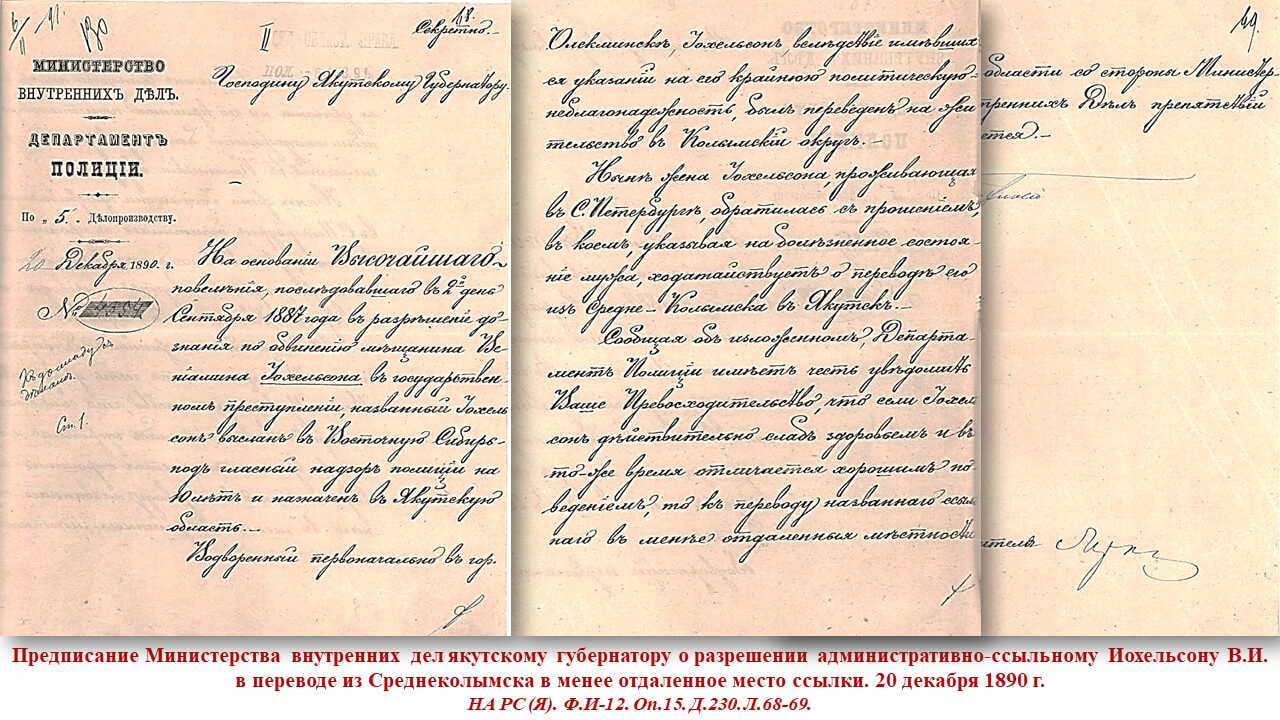 6/II 91
180
МИНИСТЕРСТВО
ВНУТРЕННИХЪ ДѢЛЪ.
ДЕПАРТАМЕНТЪ
ПОЛИЦІИ.
По „5“ Дѣлопроизводству.
20 Декабря 1890 г.
№
Ст. 1.
II
Секретно.
68.
Господину Якутскому Губернатору.
На основаніи Высочайшаго
повелѣнія, послѣдовавшаго въ 2й день
Сентября 1887 года въ разрѣшеніе до-
знанія по обвиненію мѣщанина Ве-
ніамина Іохельсона въ государствен-
номъ преступленіи, названный Іохель
сонъ высланъ въ Восточную Сибирь
подъ гласный надзоръ полиціи на
10 лѣтъ и назначенъ въ Якутскую
область.
Водворенный первоначально въ гор.
Олекминскъ, Іохельсонъ вслѣдствіе имѣвших
ся указаній на его крайнюю политическую
неблагонадежность, былъ переведенъ на жи
тельство въ Колымскій округъ.
Нынѣ жена Іохельсона, проживающая
въ С. Петербургѣ, обратилась съ прошеніемъ,
въ коемъ, указывая на болѣзненное состоя-
ніе мужа, ходатайствуетъ о переводѣ его
изъ Средне-Колымска въ Якутскъ.
Сообщая объ изложенномъ, Департа-
ментъ Полиціи имѣетъ честь увѣдомить
Ваше Превосходительство, что если Іохель
сонъ дѣйствительно слабъ здоровьемъ и въ
то-же время отличается хорошимъ по
веденіемъ, то къ переводу названнаго ссыль
наго въ менѣе отдаленныя мѣстности
69.
области со стороны Министер-
тренних Дѣлъ препятствій
ется.
ителя
Предписание Министерства внутренних дел якутскому губернатору о разрешении административно-ссыльному Иохельсону В.И.
в переводе из Среднеколымска в менее отдаленное место ссылки. 20 декабря 1890 г.
НА РС (Я). Ф.И-12. Оп.15. Д.230. Л.68-69.